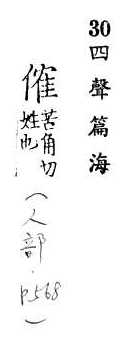 30四聲篇海
傕
苦角切
姓也
(人部.p568)